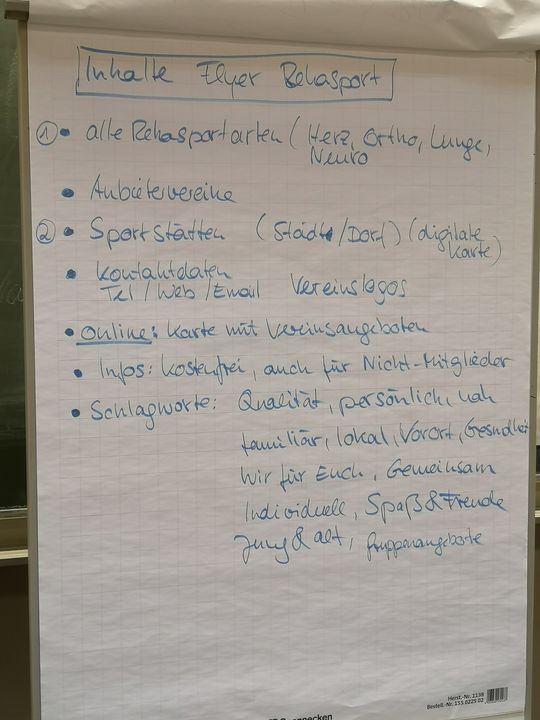 Inhalte Flyer Rehasport
① • alle Rehasportarten (Herz, Ortho, Lunge,
Neuro
• Anbietervereine
② • Sportstätten (Städt/Dorf) (digitale
Karte)
• Kontaktdaten
Tel / Web / Email Vereinslogos
• Online: Karte mit Vereinsangeboten
• Infos: kostenfrei, auch für Nicht-Mitglieder
• Schlagworte: Qualität, persönlich, nah
familiär, lokal, Vorort, Gesundheit
Wir für Euch, Gemeinsam
Individuell, Spaß & Freude
Jung & alt, Gruppenangebote
Herst.-Nr. 1138
Bestell.-Nr. 155.0225.02